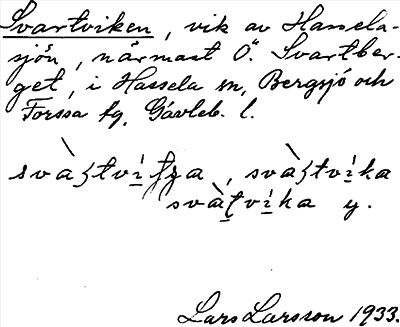 Svartviken, vik av Hassela-
sjön, närmast Ö. Svartber-
get, i Hassela sn, Bergsjö och
Forssa tg, Gävleb. l.
svàʂtvi̱ka
svàt̠vi̱ka y.
Lars Larsson 1933.